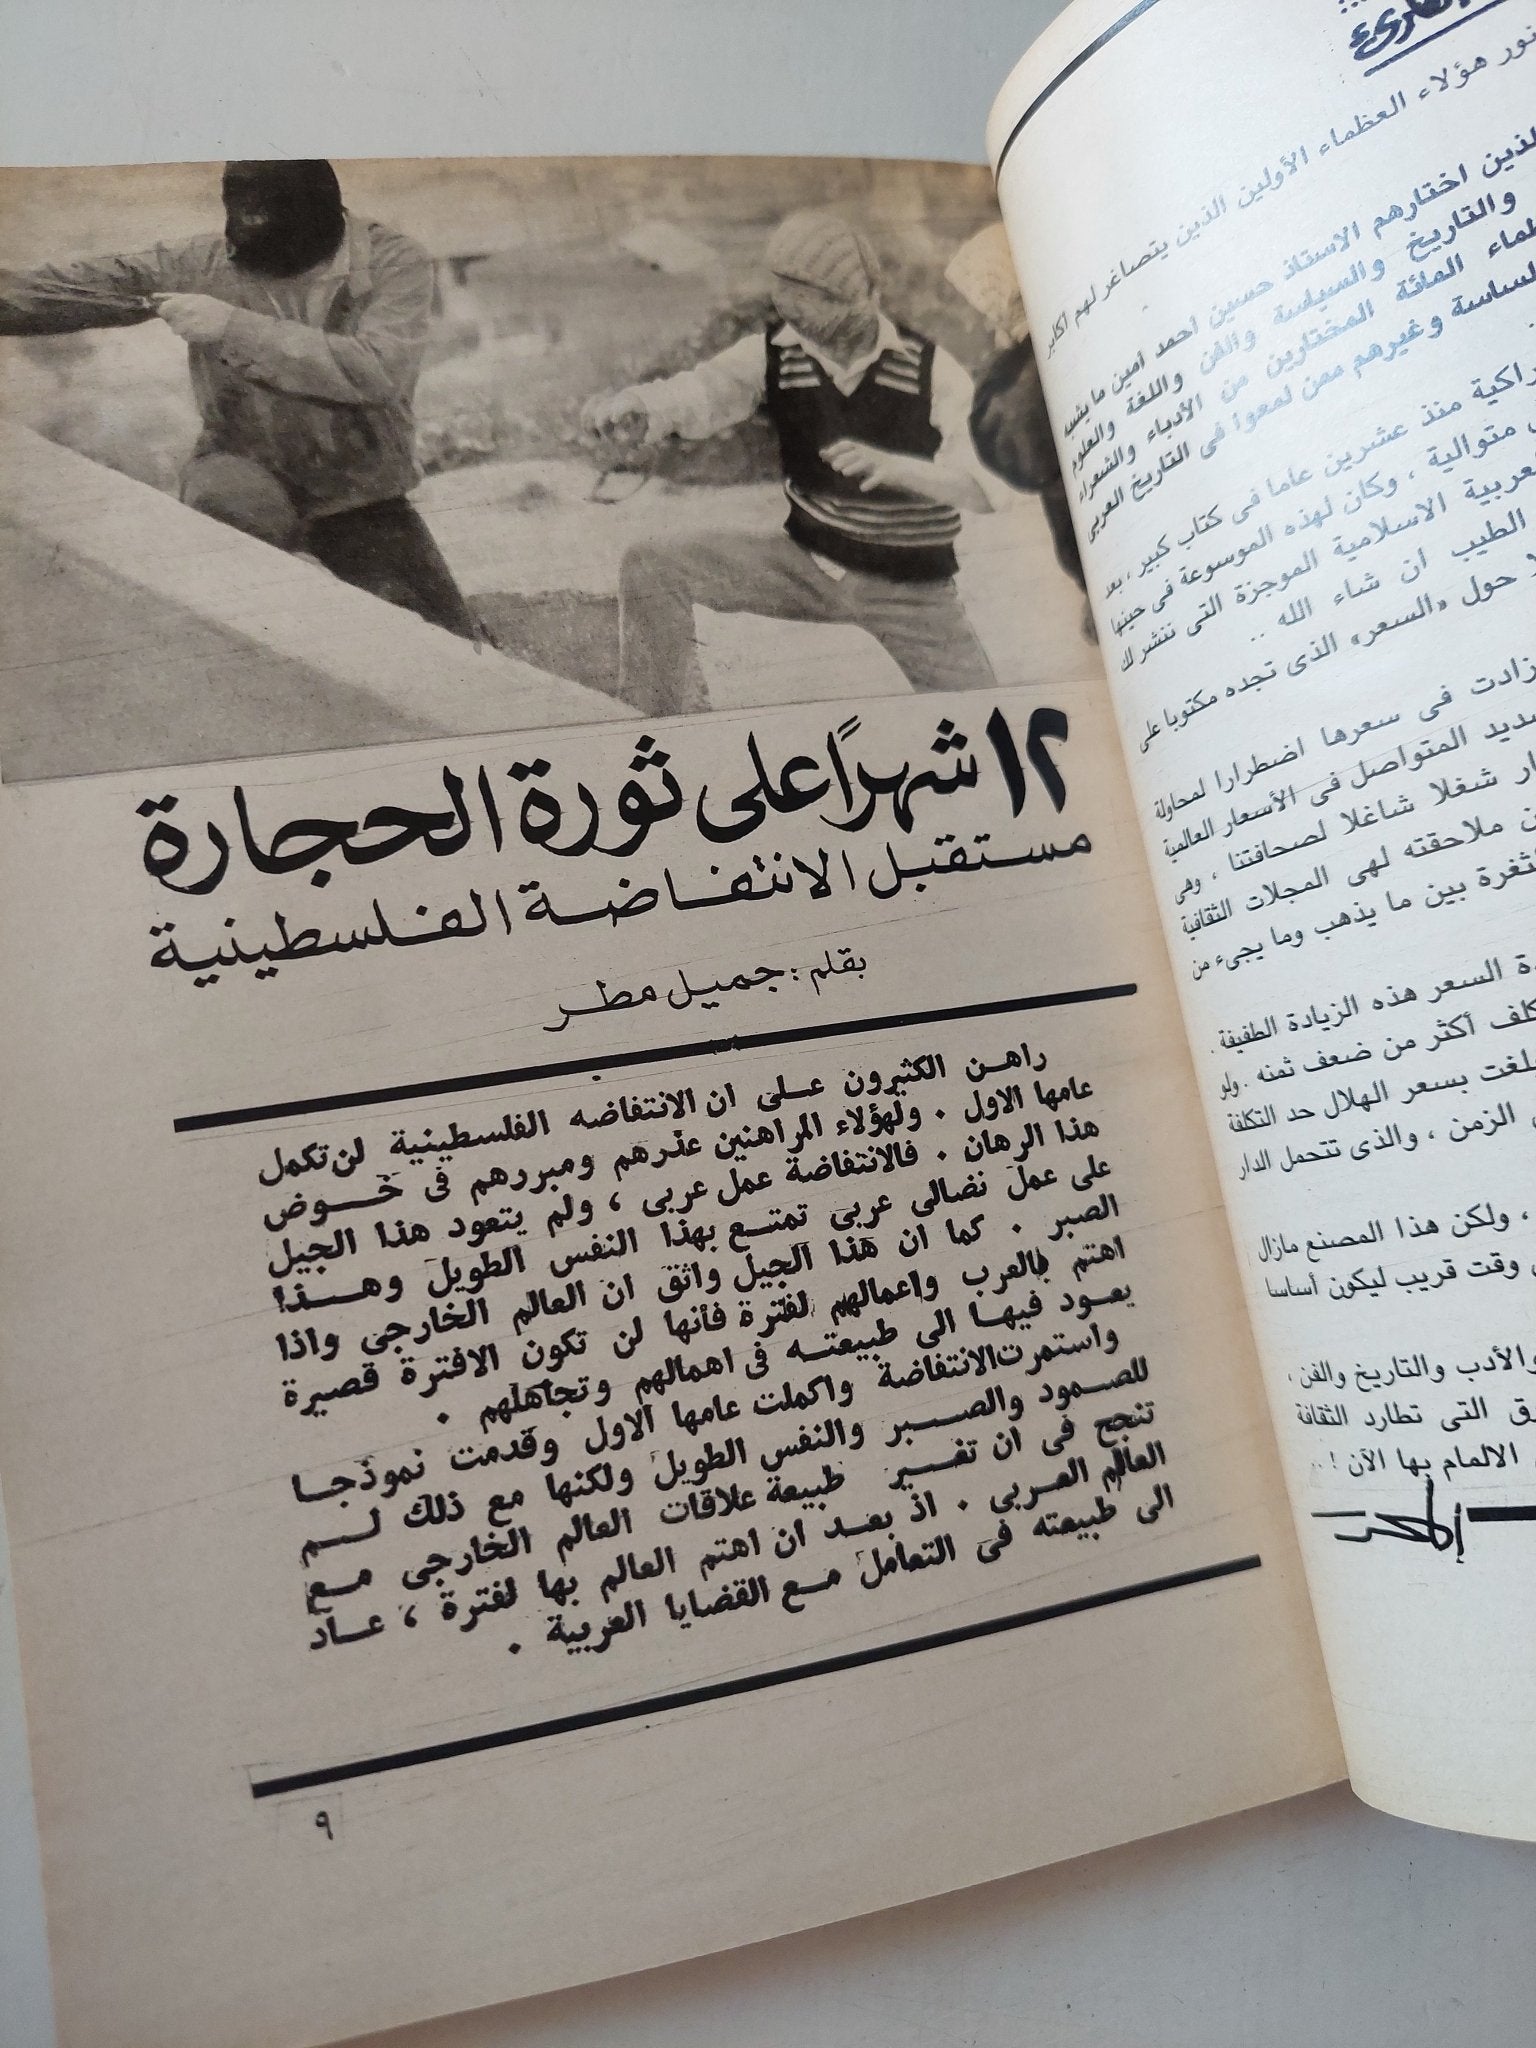 نور هؤلاء العظماء الأولين الذين يتصاغر لهم أكابر
الذين اختارهم الاستاذ حسين أحمد أمين ما يشبه
والتاريخ والسياسة والفن واللغة والعلوم
المائة المختارين من الأدباء والشعراء
الساسة وغيرهم ممن لمعوا فى التاريخ العربى
منذ عشرين عاما فى كتاب كبير ، بعد
متوالية ، وكان لهذه الموسوعة فى حينها
العربية الاسلامية الموجزة التى ننشر لك
الطيب ان شاء الله ..
حول «السعر» الذى تجده مكتوبا على
زادت فى سعرها اضطرارا لمحاولة
المتواصل فى الأسعار العالمية
شغلا شاغلا لصحافتنا ، وهى
ملاحقته لهى المجلات الثقافية
بين ما يذهب وما يجىء من
السعر هذه الزيادة الطفيفة .
أكثر من ضعف ثمنه . ولو
بلغت بسعر الهلال حد التكلفة
الزمن ، والذى تتحمل الدار
، ولكن هذا المصنع مازال
وقت قريب ليكون أساسا
والأدب والتاريخ والفن ،
التى تطارد الثقافة
الالمام بها الآن ! ..
١٢ شهرًا على ثورة الحجارة
مستقبل الانتفاضة الفلسطينية
بقلم : جميل مطر
راهن الكثيرون على ان الانتفاضه الفلسطينية لن تكمل
عامها الاول . ولهؤلاء المراهنين عذرهم ومبررهم فى خوض
هذا الرهان . فالانتفاضة عمل عربى ، ولم يتعود هذا الجيل
على عمل نضالى عربى تمتع بهذا النفس الطويل وهذا
الصبر . كما ان هذا الجيل واثق ان العالم الخارجى واذا
اهتم بالعرب واعمالهم لفترة فأنها لن تكون الافترة قصيرة
يعود فيها الى طبيعته فى اهمالهم وتجاهلهم .
واستمرت الانتفاضة واكملت عامها الاول وقدمت نموذجا
للصمود والصبر والنفس الطويل ولكنها مع ذلك لم
تنجح فى ان تغير طبيعة علاقات العالم الخارجى مع
العالم العربى . اذ بعد ان اهتم العالم بها لفترة ، عاد
الى طبيعته فى التعامل مع القضايا العربية .
٩